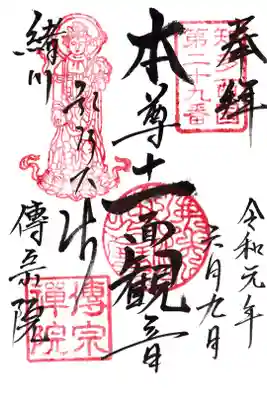 奉拝
第二十九番
令和元年
六月九日
本尊十一面観音
緒川
傳宗院
傳宗
禪院